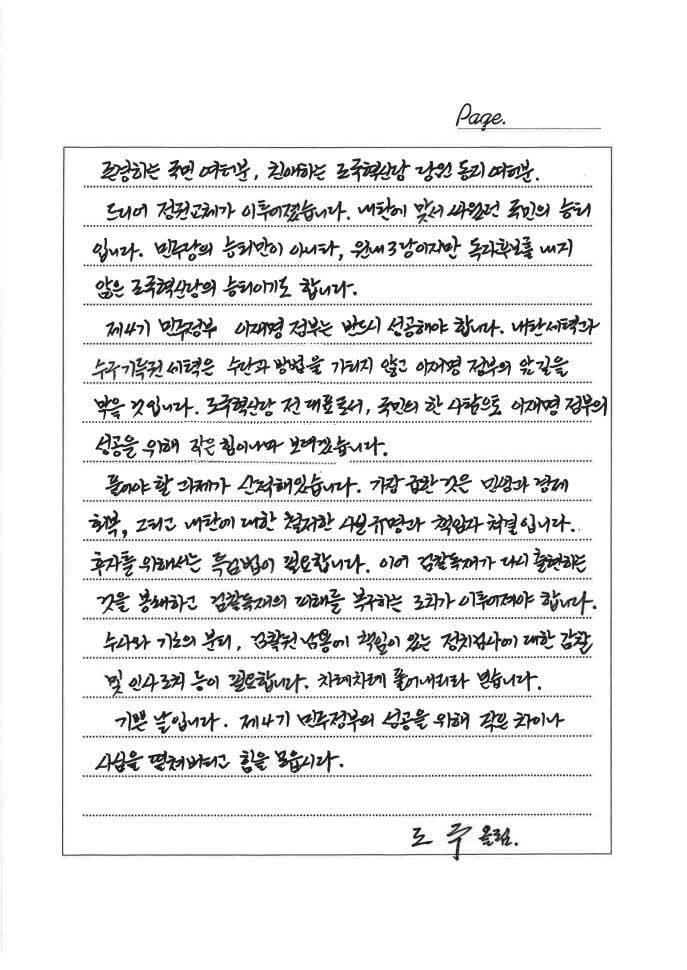 Page.
존경하는 국민 여러분, 친애하는 조국혁신당 당원 동지 여러분.
드디어 정권교체가 이루어졌습니다. 내란에 맞서 싸워왔던 국민의 승리
입니다. 민주당의 승리만이 아니라, 원내 3당이지만 독자후보를 내지
않은 조국혁신당의 승리이기도 합니다.
제4기 민주정부 이재명 정부는 반드시 성공해야 합니다. 내란세력과
수구기득권 세력은 수단과 방법을 가리지 않고 이재명 정부의 앞길을
막을 것입니다. 조국혁신당 전 대표로서, 국민의 한 사람으로 이재명 정부의
성공을 위해 작은 힘이나마 보태겠습니다.
풀어야 할 과제가 산적해있습니다. 가장 급한 것은 민생과 경제
회복, 그리고 내란에 대한 철저한 진실규명과 책임자 처벌입니다.
후자를 위해서는 특검법이 필요합니다. 이어 검찰독재가 다시 출현하는
것을 봉쇄하고 검찰독재의 피해를 복구하는 조치가 이루어져야 합니다.
수사와 기소의 분리, 검찰권 남용에 책임이 있는 정치검사에 대한 감찰
및 인사조치 등이 필요합니다. 차례차례 풀어내리라 믿습니다.
기쁜 날입니다. 제4기 민주정부의 성공을 위해 작은 차이나
사심을 떨쳐버리고 힘을 모읍시다.
조 국 올림.